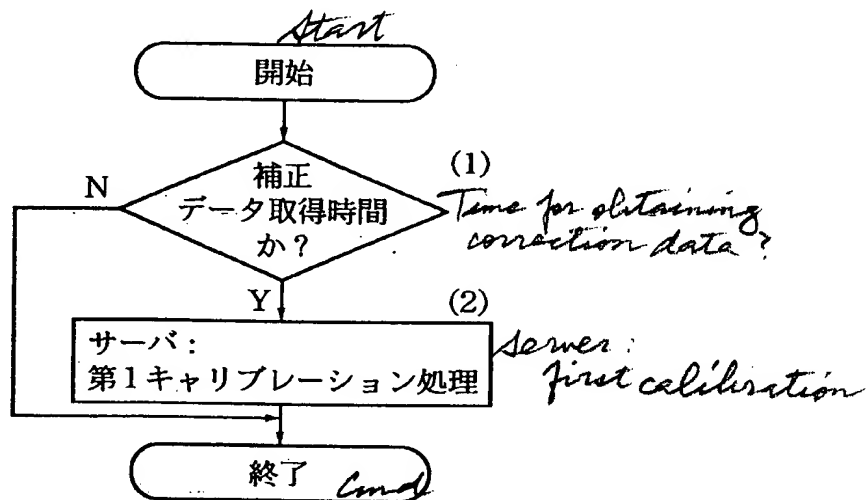 Start
開始
補正
データ取得時間
か?
N
(1)
Time for obtaining
correction data?
Y
(2)
サーバ:
第1キャリブレーション処理
server:
first calibration
終了
End